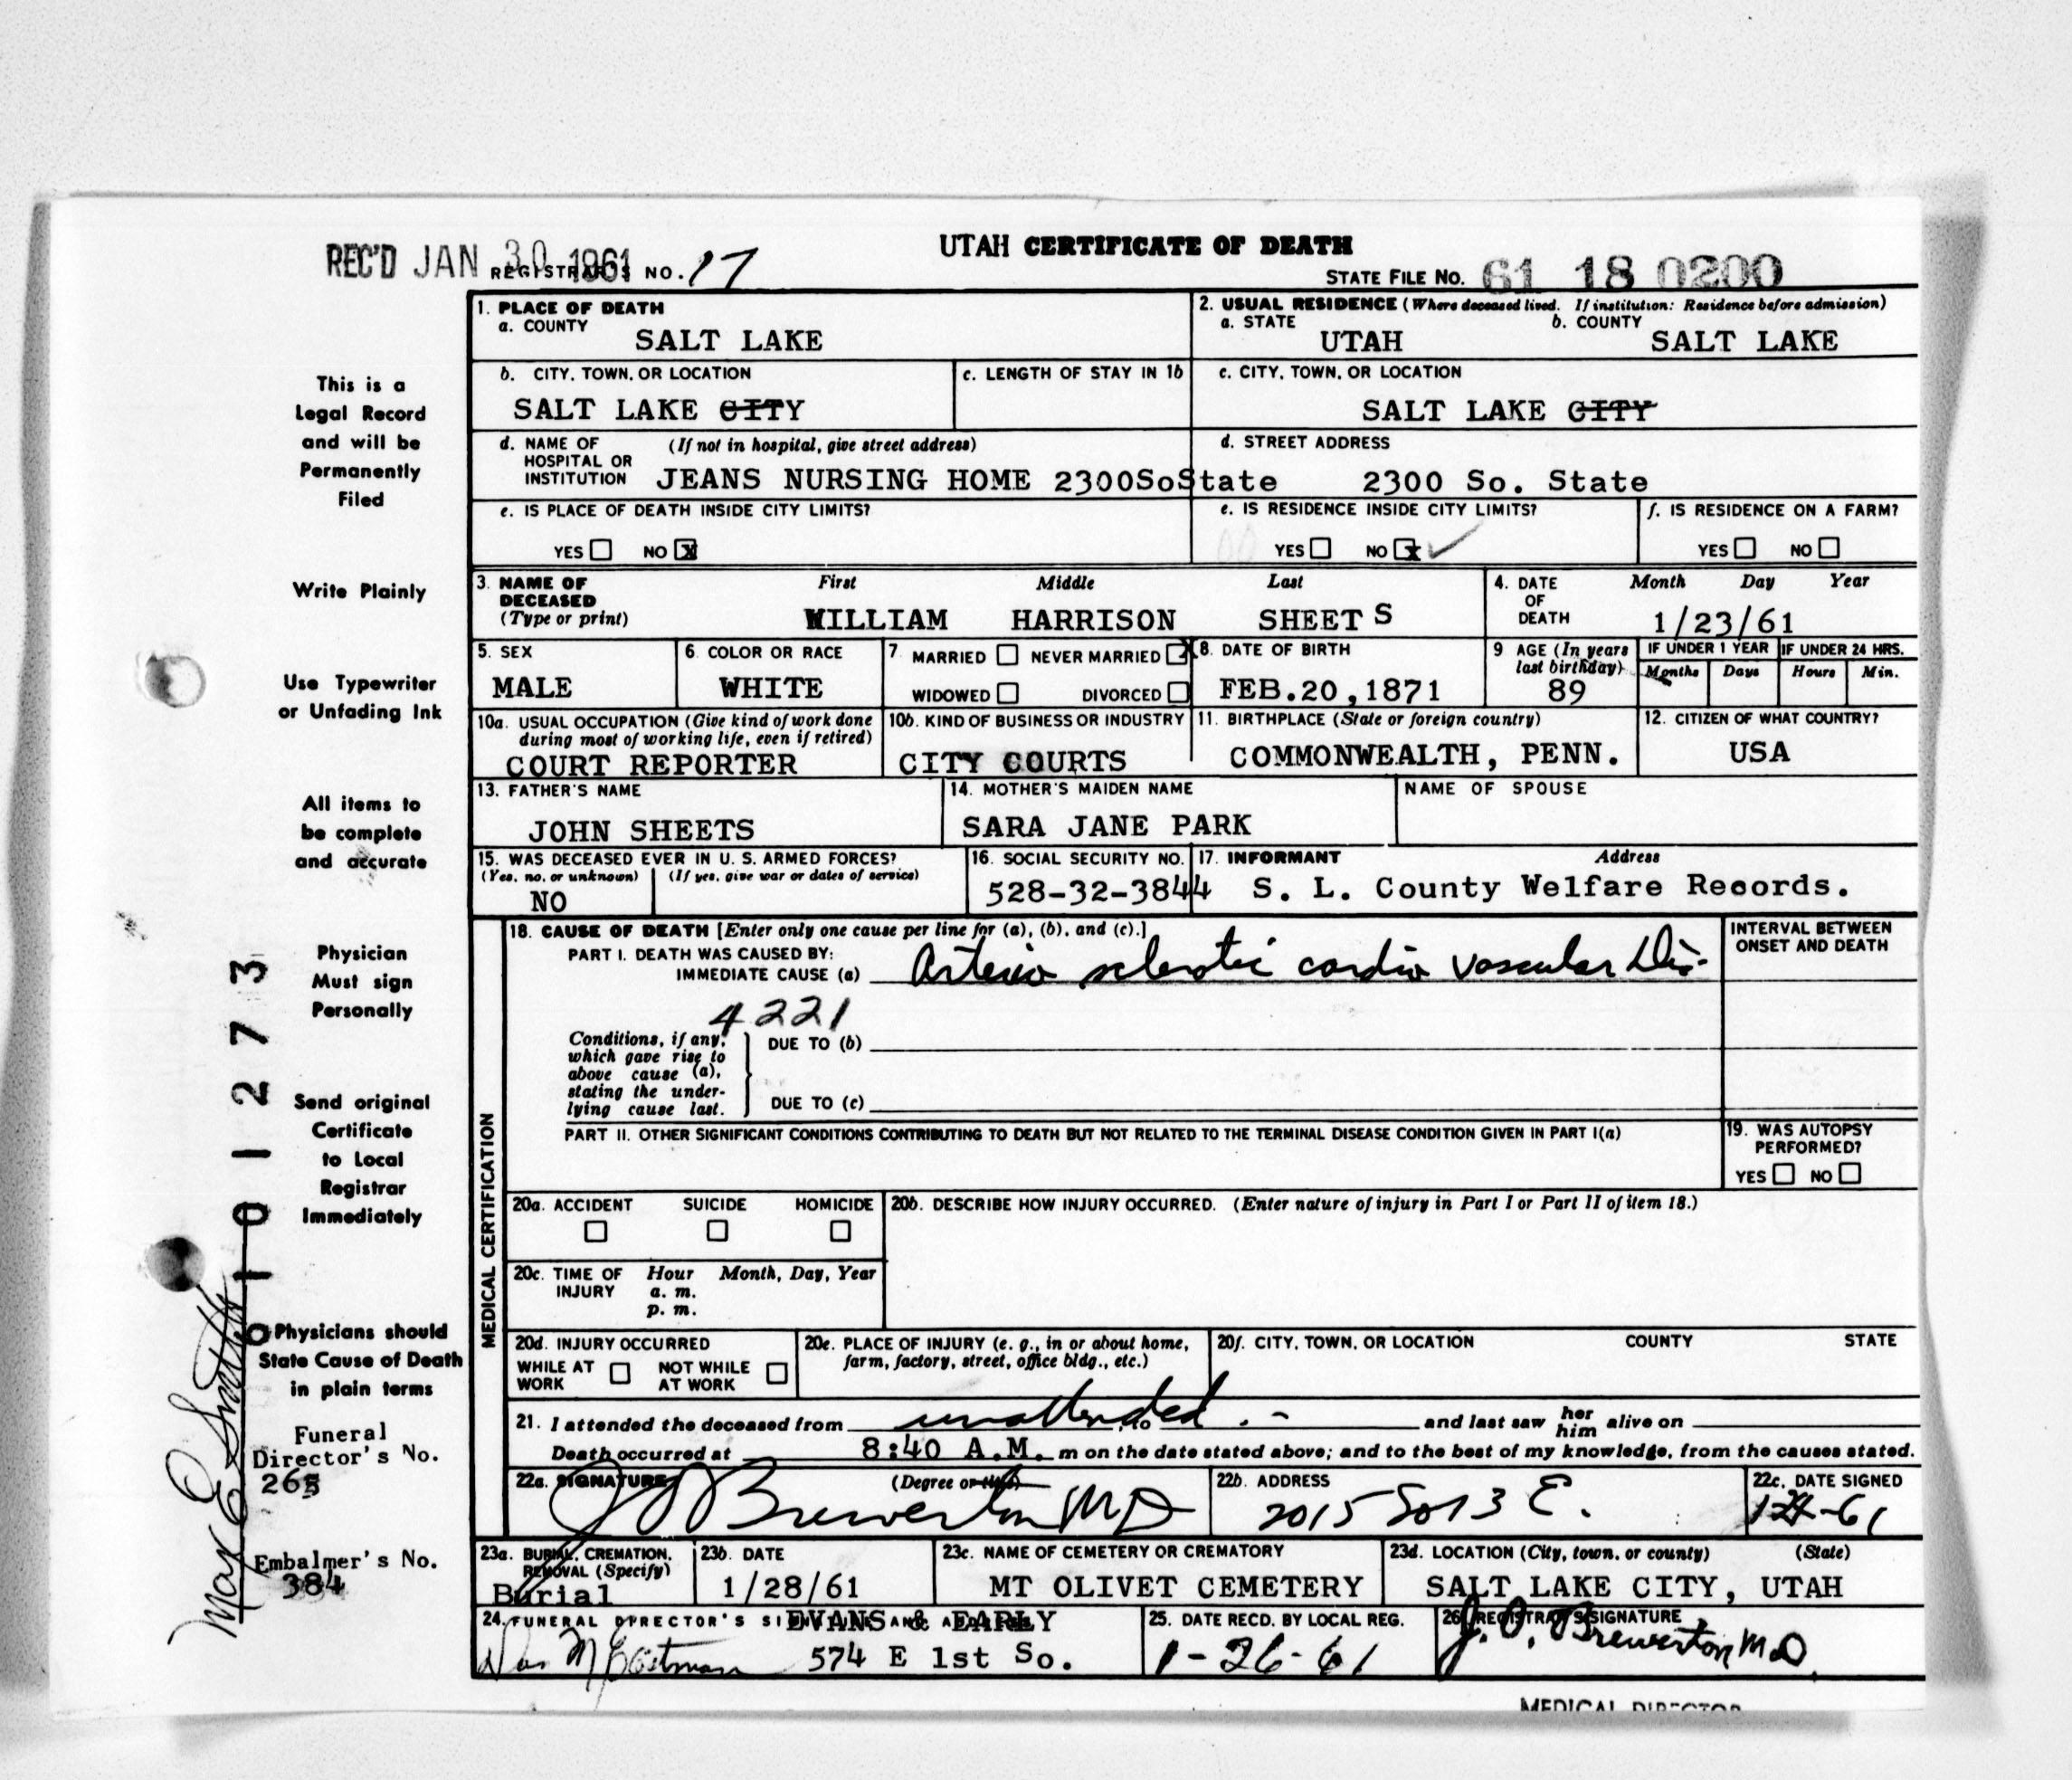 UTAH CERTIFICATE OF DEATH
REC'D JAN 30 1961 REGISTRAR'S NO. 17
STATE FILE NO. 61 18 0200
1. PLACE OF DEATH
a. COUNTY
SALT LAKE
2. USUAL RESIDENCE (Where deceased lived. If institution: Residence before admission)
a. STATE b. COUNTY
UTAH SALT LAKE
b. CITY, TOWN, OR LOCATION
SALT LAKE CITY
c. LENGTH OF STAY IN 1b
c. CITY, TOWN, OR LOCATION
SALT LAKE CITY
d. NAME OF (If not in hospital, give street address)
HOSPITAL OR
INSTITUTION JEANS NURSING HOME 2300SoState
d. STREET ADDRESS
2300 So. State
e. IS PLACE OF DEATH INSIDE CITY LIMITS?
YES NO X
e. IS RESIDENCE INSIDE CITY LIMITS?
YES NO X
f. IS RESIDENCE ON A FARM?
YES NO
3. NAME OF First Middle Last
DECEASED
(Type or print) WILLIAM HARRISON SHEETS
4. DATE Month Day Year
OF
DEATH 1/23/61
5. SEX
MALE
6. COLOR OR RACE
WHITE
7. MARRIED NEVER MARRIED X
WIDOWED DIVORCED
8. DATE OF BIRTH
FEB.20,1871
9 AGE (In years
last birthday)
89
IF UNDER 1 YEAR IF UNDER 24 HRS.
Months Days Hours Min.
10a. USUAL OCCUPATION (Give kind of work done
during most of working life, even if retired)
COURT REPORTER
10b. KIND OF BUSINESS OR INDUSTRY
CITY COURTS
11. BIRTHPLACE (State or foreign country)
COMMONWEALTH, PENN.
12. CITIZEN OF WHAT COUNTRY?
USA
13. FATHER'S NAME
JOHN SHEETS
14. MOTHER'S MAIDEN NAME
SARA JANE PARK
NAME OF SPOUSE
15. WAS DECEASED EVER IN U. S. ARMED FORCES?
(Yes, no, or unknown) (If yes, give war or dates of service)
NO
16. SOCIAL SECURITY NO.
528-32-3844
17. INFORMANT Address
S. L. County Welfare Records.
18. CAUSE OF DEATH [Enter only one cause per line for (a), (b), and (c).]
PART I. DEATH WAS CAUSED BY:
IMMEDIATE CAUSE (a) Arterio sclerotic cardio vascular Dis.
INTERVAL BETWEEN
ONSET AND DEATH
4221
Conditions, if any,
which gave rise to
above cause (a),
stating the under-
lying cause last.
DUE TO (b)
DUE TO (c)
PART II. OTHER SIGNIFICANT CONDITIONS CONTRIBUTING TO DEATH BUT NOT RELATED TO THE TERMINAL DISEASE CONDITION GIVEN IN PART I(a)
19. WAS AUTOPSY
PERFORMED?
YES NO
MEDICAL CERTIFICATION
20a. ACCIDENT SUICIDE HOMICIDE
20b. DESCRIBE HOW INJURY OCCURRED. (Enter nature of injury in Part I or Part II of item 18.)
20c. TIME OF Hour Month, Day, Year
INJURY a. m.
p. m.
20d. INJURY OCCURRED
WHILE AT NOT WHILE
WORK AT WORK
20e. PLACE OF INJURY (e. g., in or about home,
farm, factory, street, office bldg., etc.)
20f. CITY, TOWN, OR LOCATION COUNTY STATE
21. I attended the deceased from unattended. - , to and last saw her him alive on
Death occurred at 8:40 A.M. m on the date stated above; and to the best of my knowledge, from the causes stated.
22a. SIGNATURE (Degree or title)
J O Brewerton MD
22b. ADDRESS
2015 So 13 E.
22c. DATE SIGNED
23a. BURIAL, CREMATION,
REMOVAL (Specify)
Burial
23b. DATE
1/28/61
23c. NAME OF CEMETERY OR CREMATORY
MT OLIVET CEMETERY
23d. LOCATION (City, town, or county) (State)
SALT LAKE CITY, UTAH
24. FUNERAL DIRECTOR'S SIGNATURE AND ADDRESS
EVANS & EARLY
574 E 1st So.
25. DATE RECD. BY LOCAL REG.
1-26-61
26. REGISTRAR'S SIGNATURE
J. O. Brewerton M.D.
MEDICAL DIRECTOR
This is a
Legal Record
and will be
Permanently
Filed
Write Plainly
Use Typewriter
or Unfading Ink
All items to
be complete
and accurate
Physician
Must sign
Personally
Send original
Certificate
to Local
Registrar
Immediately
Physicians should
State Cause of Death
in plain terms
Funeral
Director's No.
Embalmer's No.
384
Max E Smith